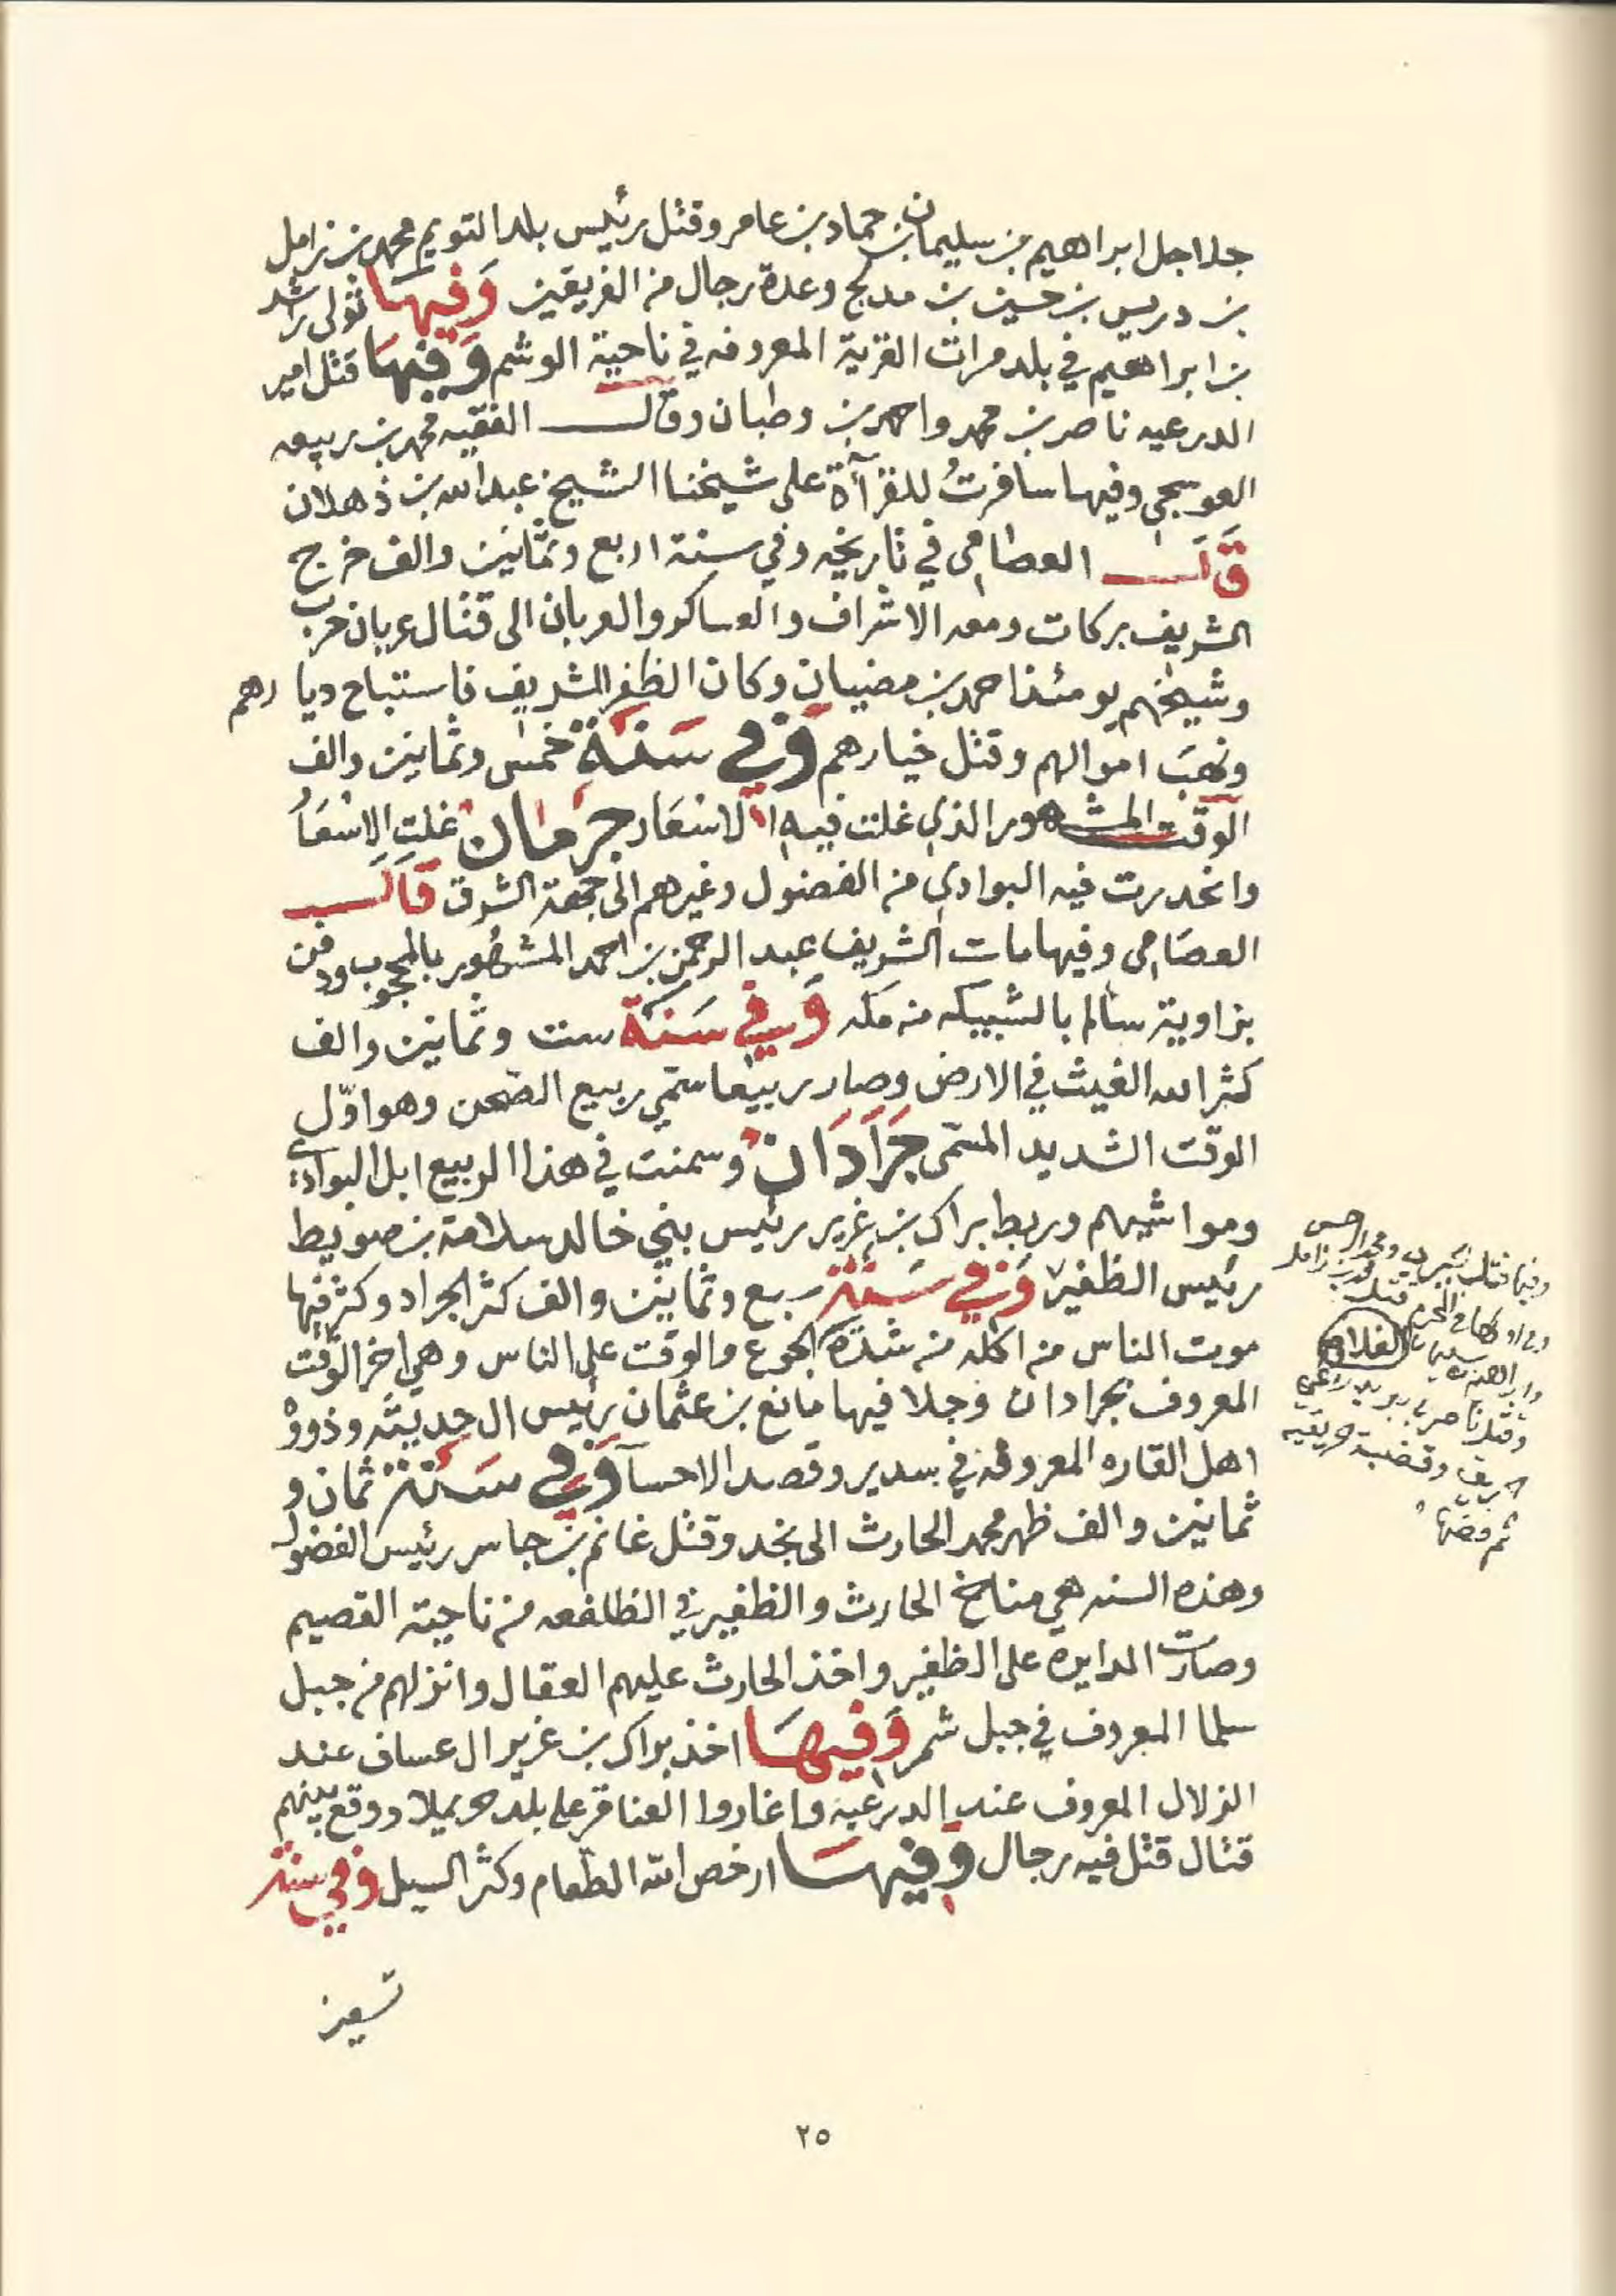 جلاجل ابراهيم بن سليمان بن حماد بن عامر وقتل رئيس بلد التويم محمد بن زامل
بن دريس بن حسين بن مدلج وعدة رجال من الفريقين وَفيهَا تولى راشد
بن ابراهيم في بلد مرات القرية المعروفه في ناحية الوشم وَفيهَا قتل امير
الدرعيه ناصر بن محمد واحمد بن وطبان وقال الفقيه محمد بن ربيعه
العوسجي وفيها سافرتُ للقرآة على شيخنا الشيخ عبد الله بن ذهلان
قَالَ العصامي في تاريخه وفي سنة اربع وثمانين والف خرج
الشريف بركات ومعه الاشراف والعساكر والعربان الى قتال عربان حرب
وشيخهم يومئذ احمد بن مضيان وكان الظفر للشريف فاستباح ديارهم
ونهبَ اموالهم وقتل خيارهم وَفي سَنَةِ خمس وثمانين والف
الوقت المشهور الذي غلت فيه الاسعَار جرمان غلت الاسْعَا
وانحدرت فيه البوادي من الفضول وغيرهم الى جهة الشرق قَالَ
العصَامي وفيها مات الشريف عبد الرحمن بن احمد المشهُور بالمحجوب ودفن
بزاوية سالم بالشبيكه من مكه وَفي سَنَة ست وثمانين والف
كثر الله الغيث في الارض وصار ربيعا سمّي ربيع الصحن وهو اوّل
الوقت الشديد المسمّى جَرَادَان وسمنت في هذا الربيع ابل البوادي
ومواشيهم وربط براك بن غرير رئيس بني خالد سلامة بن صويط
رئيس الظفير وَفي سَنة سبع وثمانين والف كثر الجراد وكثر فيها
موت الناس من اكله من شدّة الجوع والوقت على الناس وهي اخر الوقت
المعروف بجرادان وجلا فيها مانع بن عثمان رئيس ال حديثه وذووه
اهل القاره المعروفه في سدير وقصد الاحسآ وَفي سَنة ثمان و
ثمانين والف ظهر محمد الحارث الى نجد وقتل غانم بن جاسر رئيس الفضول
وهذه السنه هي مناخ الحارث والظفير في الظلفعه من ناحية القصيم
وصارت الدايره على الظفير واخذ الحارث عليهم العقال وانزلهم من جبل
سلما المعروف في جبل شمر وَفيهَا اخذ براك بن غرير ال عساف عند
الزلال المعروف عند الدرعيه واغاروا العناقر على بلد حريملا ووقع بينهم
قتال قتل فيه رجال وفيهَا ارخص الله الطعام وكثر السيل وفي سنة
تسعين
وقتل ناصر بن بريد
٢٥